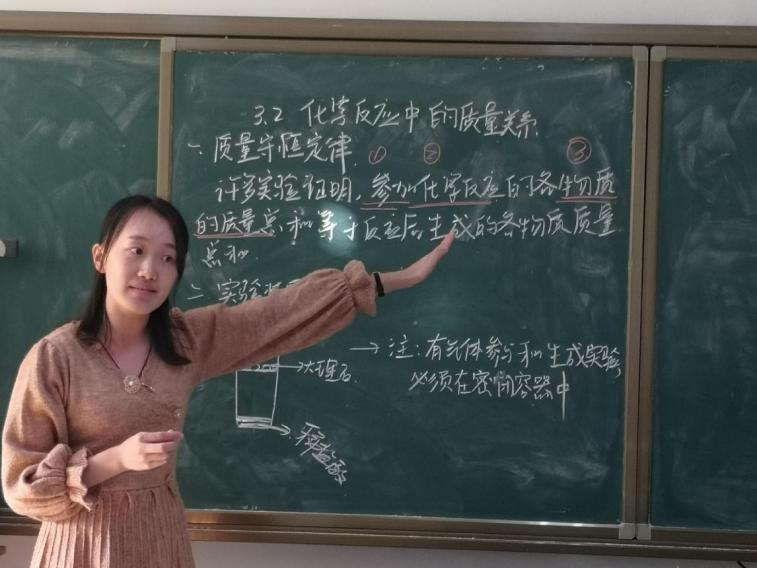 3.2 化学反应中的质量关系
一、质量守恒定律
① ② ③
许多实验证明，参加化学反应的各物质
的质量总和等于反应后生成的各物质质量
总和
二、实验
→大理石
稀盐酸
→注：有气体参与和生成实验
必须在密闭容器中